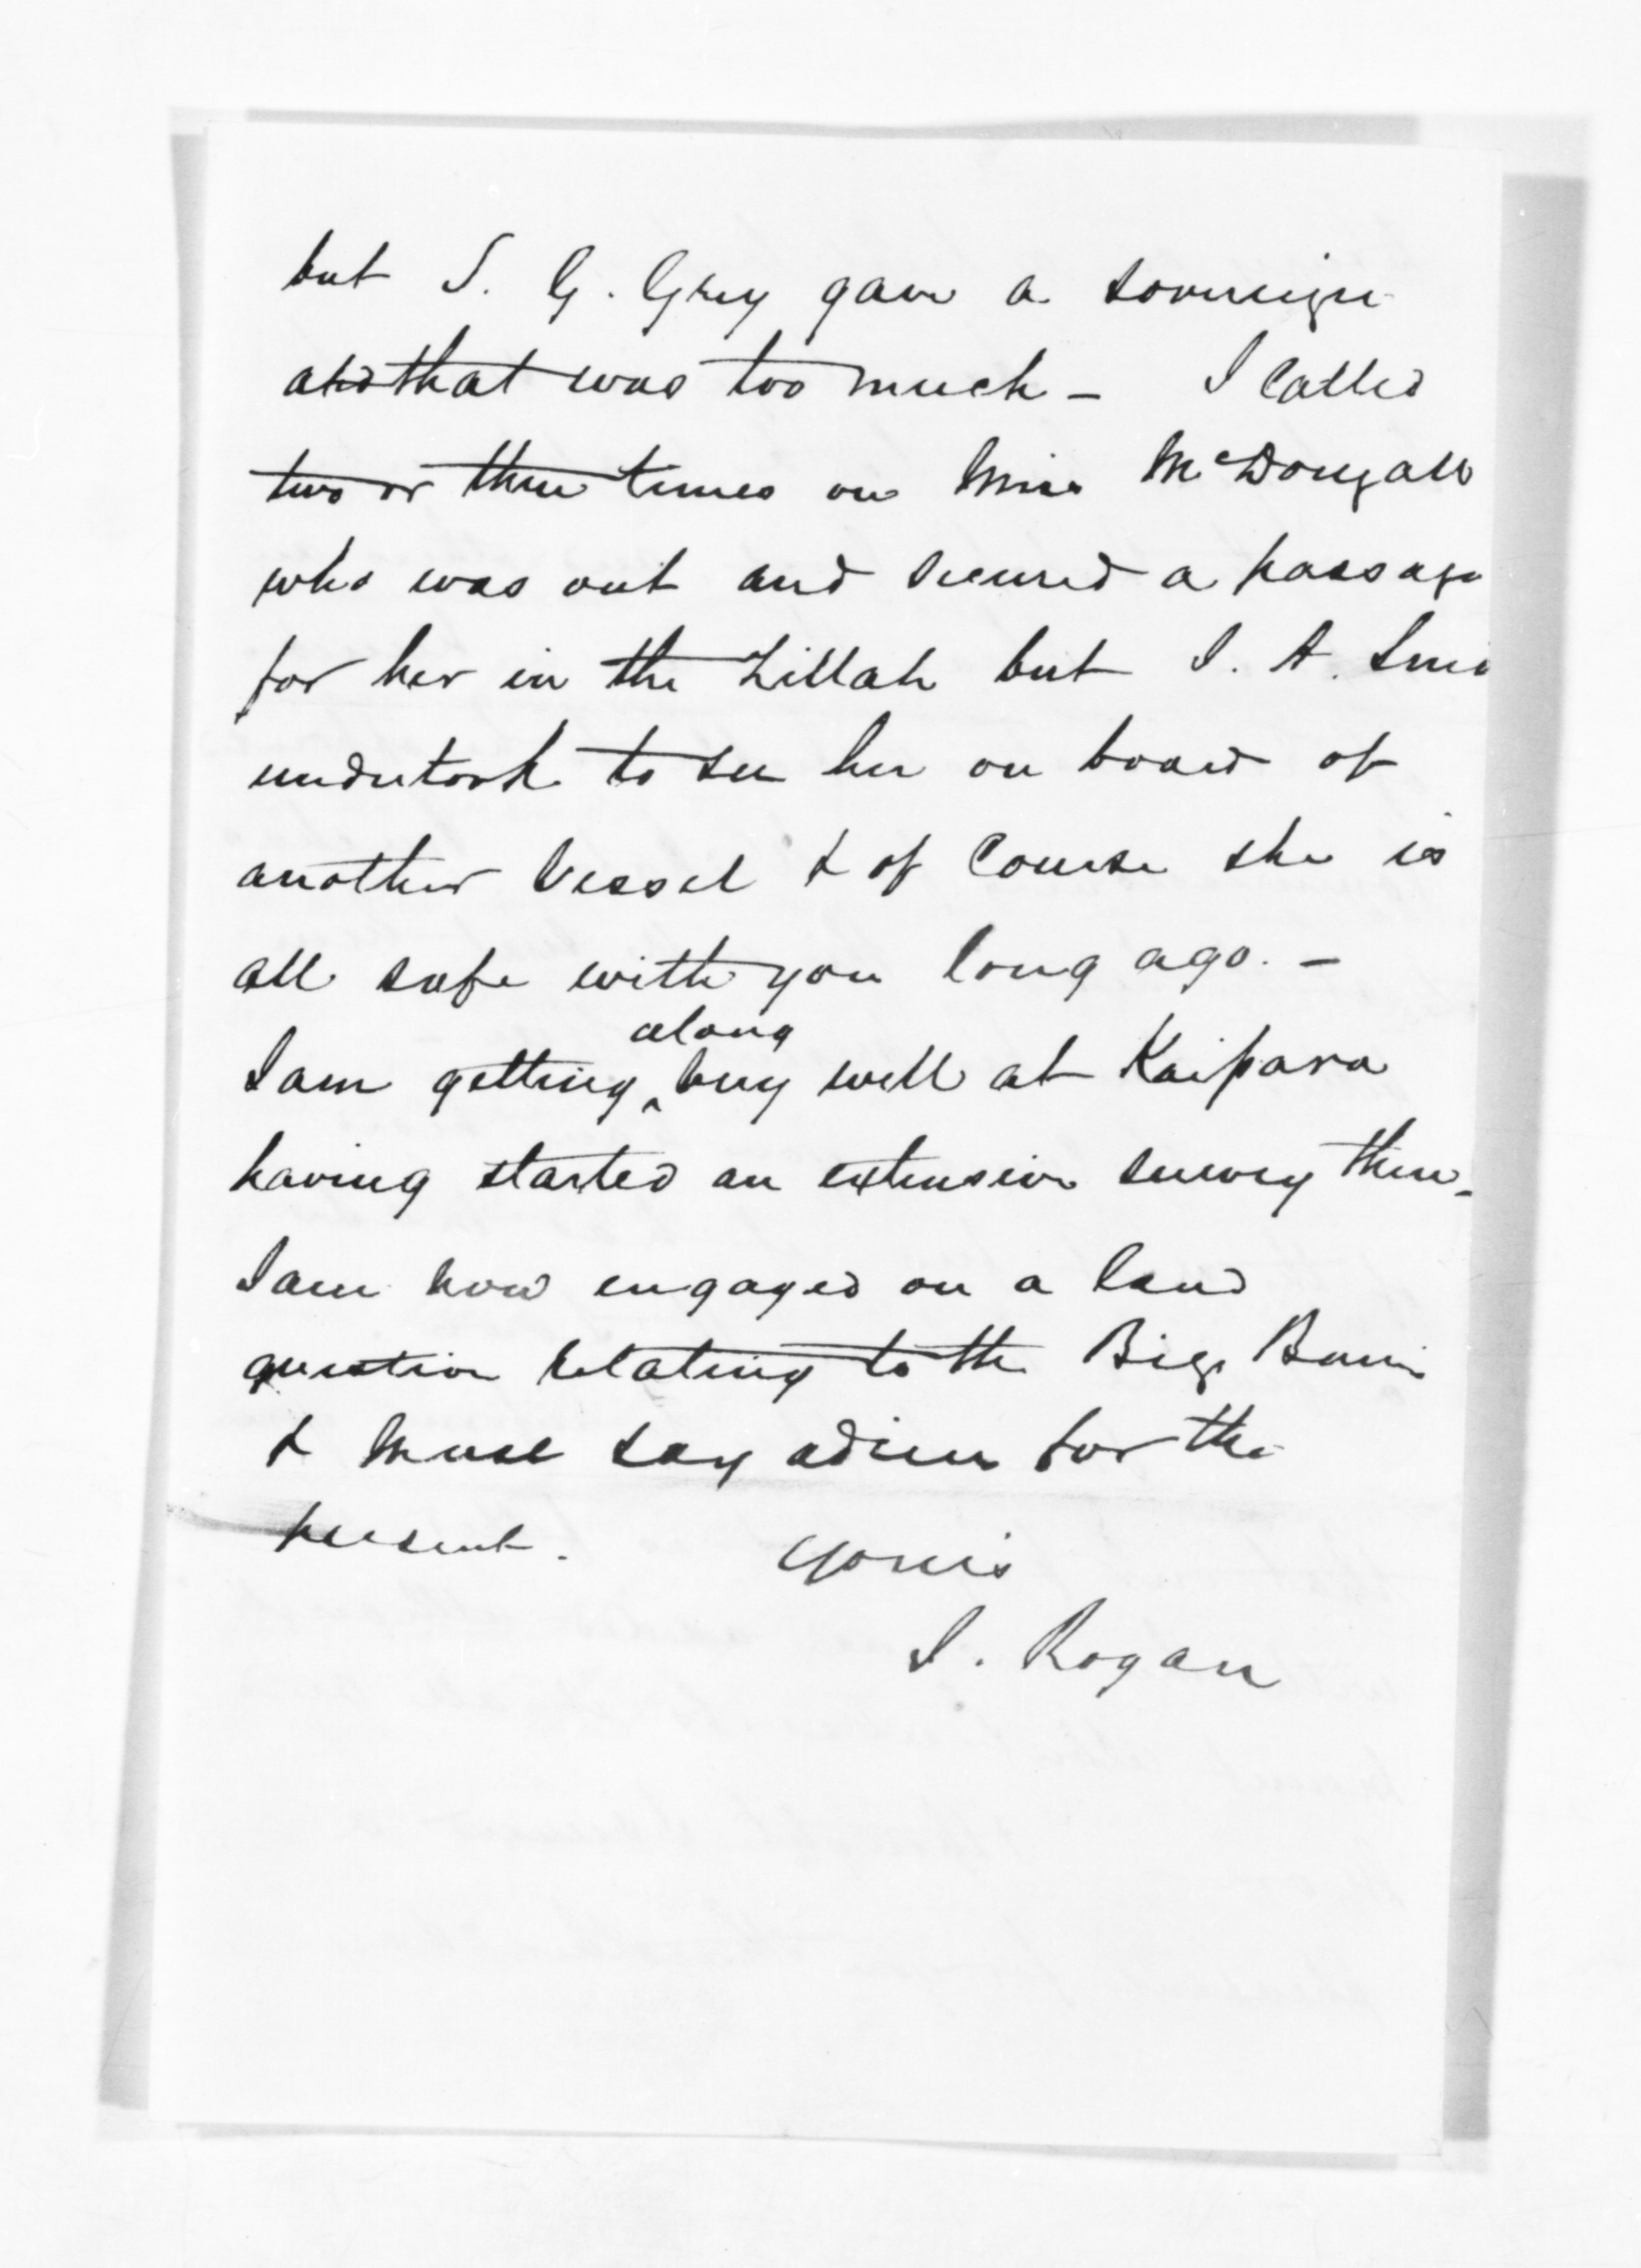 but S. G. Grey gave a sovereign
and that was too much – I called
two or three times on Miss McDougall
who was out and secured a passage
for her in the Zillah but I. A. Smi
undertook to see her on board of
another Vessel & of Course she is
all safe with you long ago. –
along
I am getting ^ very well at Kaipara
having started an extensive survey there –
I am now engaged on a land
question relating to the Big
& must say adieu for the
present. Yours
J. Rogan